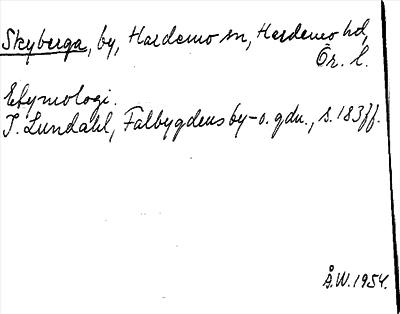 Skyberga, by, Hardemo sn, Hardemo hd,
Ör. l.
Etymologi.
I. Lundahl, Falbygdens by-o. gdn., s. 183ff.
Å.W. 1954.